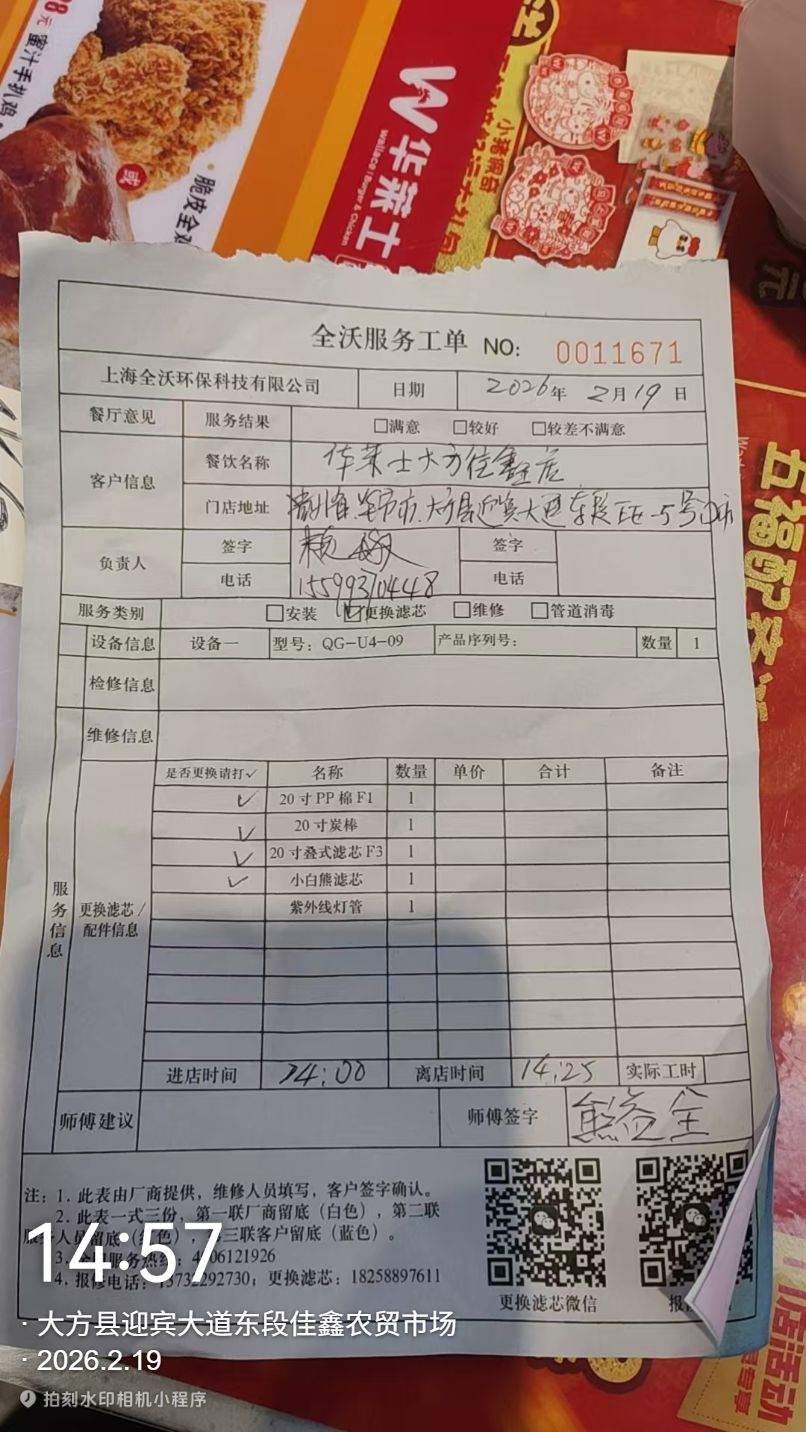 8元
蜜汁手扒鸡
或
脆皮全鸡
华莱士
Wallace | Burger & Chicken
小猪闹春
五福配齐
全沃服务工单 NO: 0011671
上海全沃环保科技有限公司 日期 2026年 2月19日
餐厅意见 服务结果 □满意 □较好 □较差不满意
客户信息 餐饮名称 华莱士大方佳鑫店
门店地址 贵州省毕节市大方县迎宾大道东段 5号
负责人 签字 签字
电话 15599310448 电话
服务类别 □安装 ☑更换滤芯 □维修 □管道消毒
设备信息 设备一 型号：QG-U4-09 产品序列号： 数量 1
检修信息
维修信息
服务信息
更换滤芯/配件信息
是否更换请打✓ 名称 数量 单价 合计 备注
✓ 20寸PP棉F1 1
✓ 20寸炭棒 1
✓ 20寸叠式滤芯F3 1
✓ 小白熊滤芯 1
紫外线灯管 1
进店时间 14:00 离店时间 14:25 实际工时
师傅建议 师傅签字 熊益全
注：1. 此表由厂商提供，维修人员填写，客户签字确认。
2. 此表一式三份，第一联厂商留底（白色），第二联
服务人员留底（色），第三联客户留底（蓝色）。
3. 全国服务热线：4006121926
4. 报修电话：13732292730；更换滤芯：18258897611
更换滤芯微信
报
14:57
· 大方县迎宾大道东段佳鑫农贸市场
· 2026.2.19
拍刻水印相机小程序
店活动